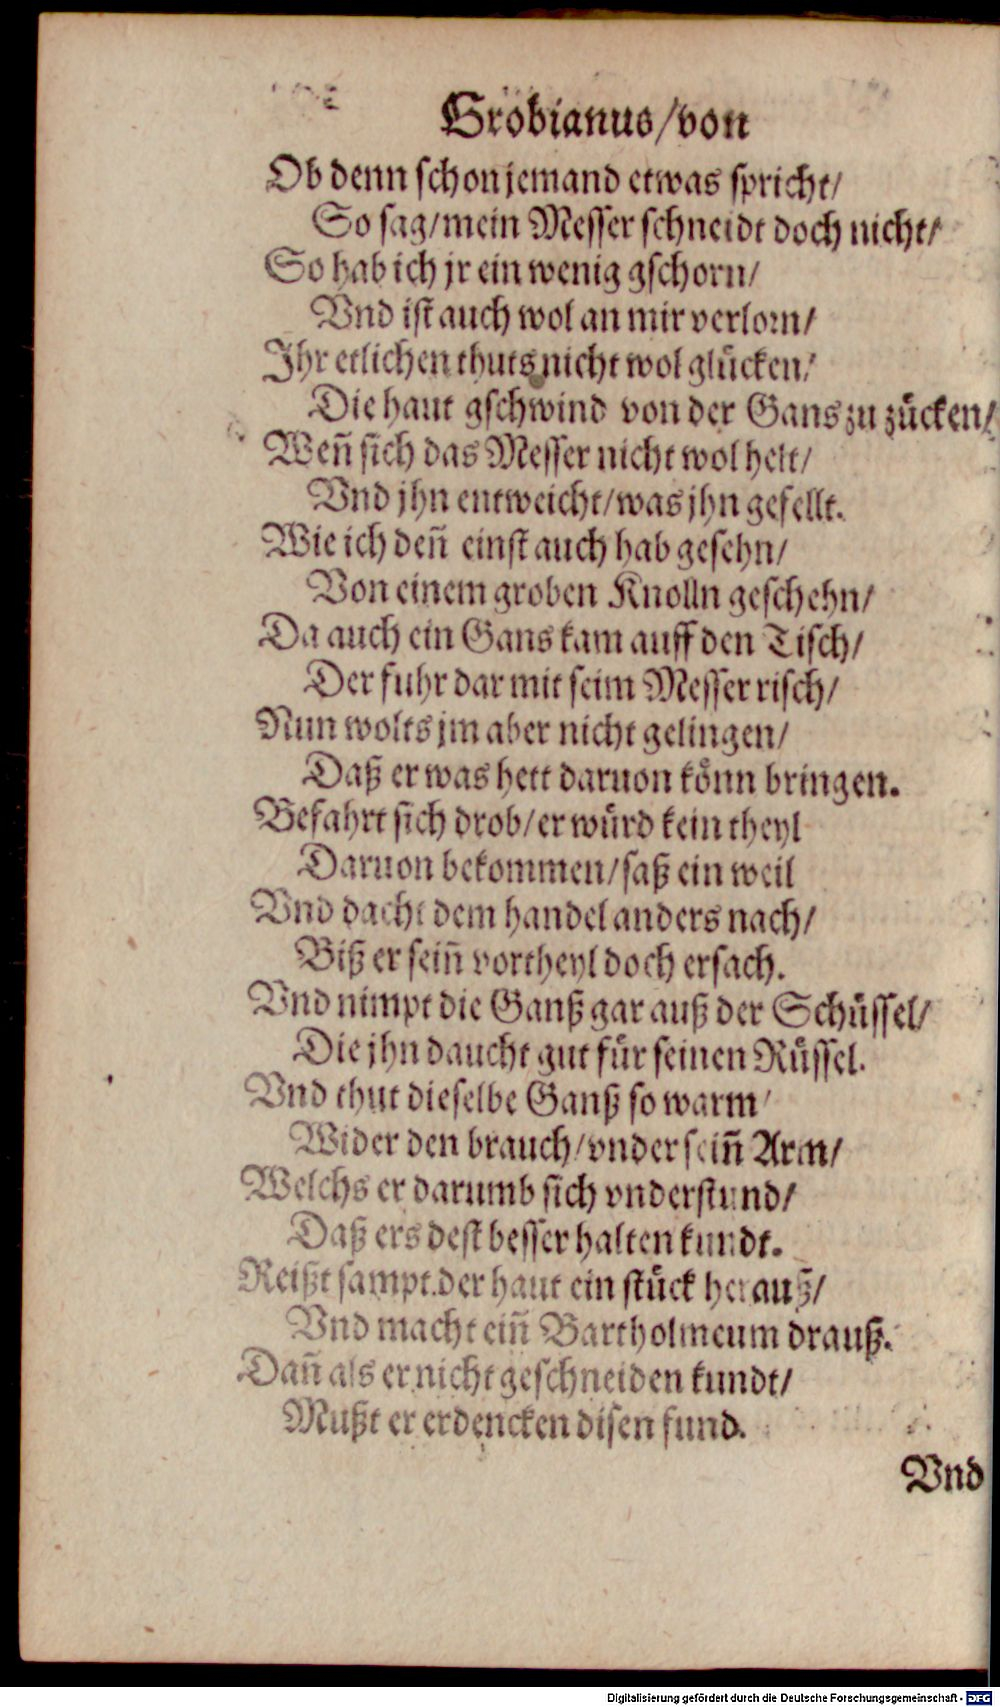 Grobianus/von
Ob denn schon jemand etwas spricht/
So sag/mein Messer schneidt doch nicht/
So hab ich jr ein wenig gschorn/
Vnd ist auch wol an mir verlorn/
Ihr etlichen thuts nicht wol glücken/
Die haut gschwind von der Gans zu zücken/
Weñ sich das Messer nicht wol helt/
Vnd jhn entweicht/was jhn gefellt.
Wie ich deñ einst auch hab gesehn/
Von einem groben Knolln geschehn/
Da auch ein Gans kam auff den Tisch/
Der fuhr dar mit seim Messer risch/
Nun wolts jm aber nicht gelingen/
Daß er was hett daruon könn bringen.
Befahrt sich drob/er würd kein theyl
Daruon bekommen/saß ein weil
Vnd dacht dem handel anders nach/
Biß er seiñ vortheyl doch ersach.
Vnd nimpt die Ganß gar auß der Schüssel/
Die jhn daucht gut für seinen Rüssel.
Vnd thut dieselbe Ganß so warm/
Wider den brauch/vnder seiñ Arm/
Welchs er darumb sich vnderstund/
Daß ers dest besser halten kundt.
Reißt sampt der haut ein stück herauß/
Vnd macht eiñ Bartholmeum drauß.
Dañ als er nicht geschneiden kundt/
Mußt er erdencken disen fund.
Vnd
Digitalisierung gefördert durch die Deutsche Forschungsgemeinschaft - DFG